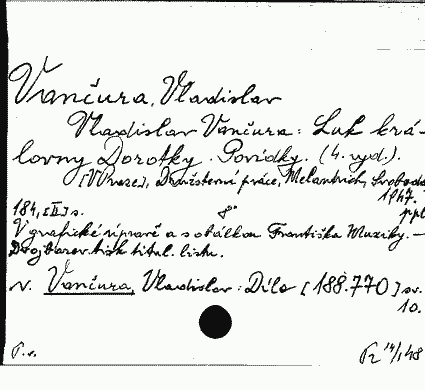 Vančura, Vladislav
Vladislav Vančura: Luk krá-
lovny Dorotky. Povídky. (4. vyd.).
[V Praze], Družstevní práce, Melantrich, Svoboda
1947.
184, [II] s. 8° ppl
V grafické úpravě a s obálkou Františka Muziky. —
Dvojbarev. tisk titul. listu.
v. Vančura, Vladislav: Dílo [188.770] sv.
10.
P.v. Př 14/148